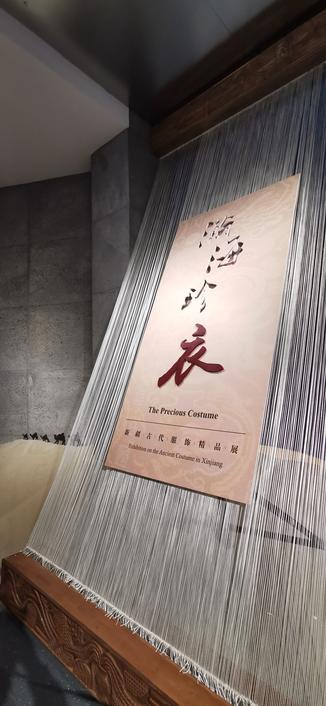 瀚海珍衣
The Precious Costume
新疆古代服饰精品展
Exhibition on the Ancient Costume in Xinjiang